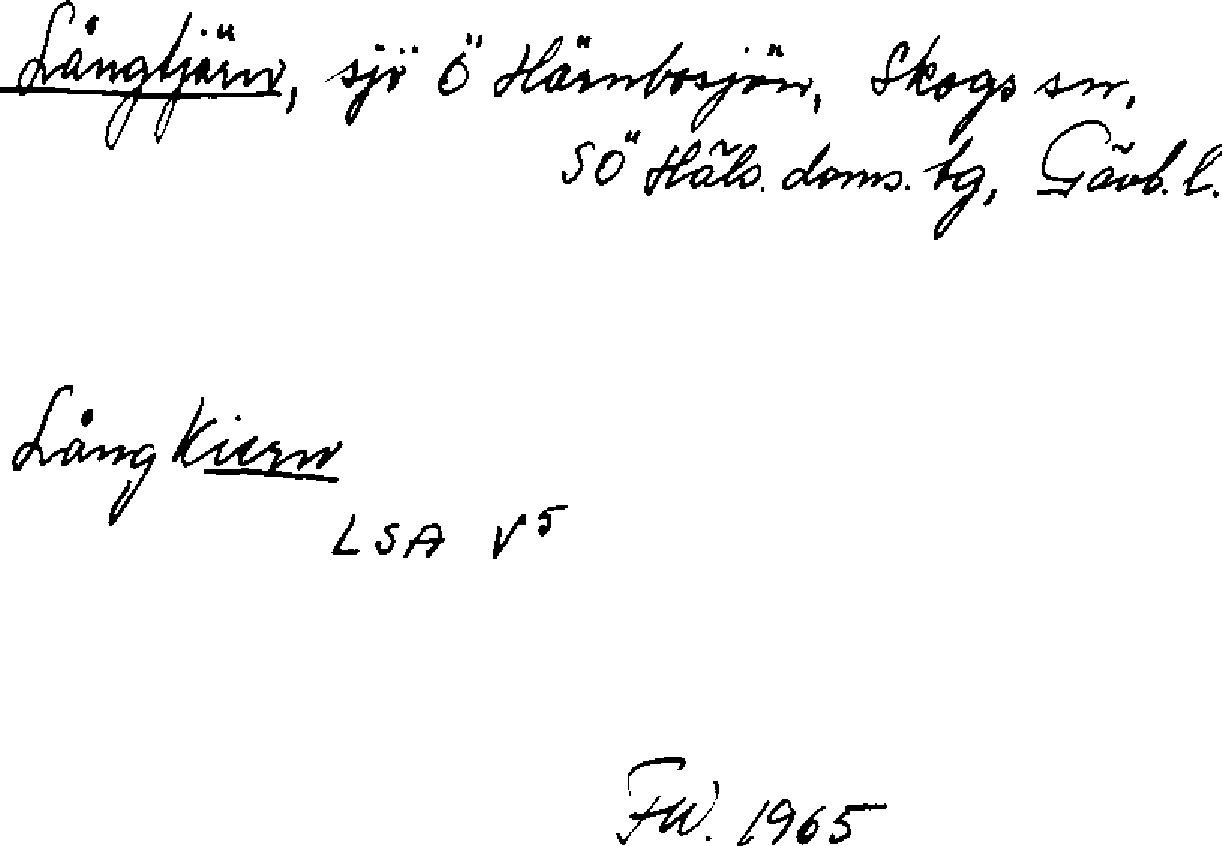 Långtjärn, sjö Ö Härnbosjön, Skogs sn,
SÖ Häls. doms. tg, Gävb. l.
Lång Kiern
LSA V5
FW. 1965